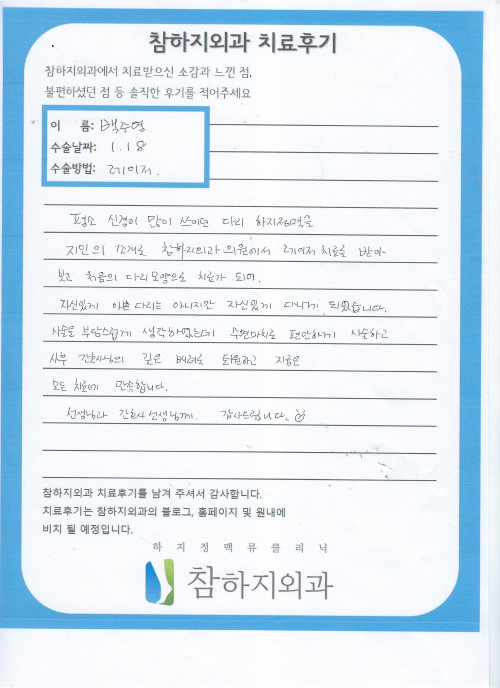 참하지외과 치료후기
참하지외과에서 치료받으신 소감과 느낀 점,
불편하셨던 점 등 솔직한 후기를 적어주세요
이 름: 백주영
수술날짜: 1.18
수술방법: 레이저.
평소 신경이 많이 쓰이던 다리 하지정맥을
지인의 소개로 참하지외과의원에서 레이저 치료를 받아
보고 처음의 다리모양으로 치료가 되어.
자신있게 이쁜다리는 아니지만 자신있게 다니게 되었습니다.
시술을 부담스럽게 생각하였는데 수면마취로 편안하게 시술하고
사후 간호사님의 깊은 배려로 퇴원하고 지금은
모든 치료에 만족합니다.
선생님과 간호사선생님께. 감사드립니다.
참하지외과 치료후기를 남겨 주셔서 감사합니다.
치료후기는 참하지외과의 블로그, 홈페이지 및 원내에
비치 될 예정입니다.
하지정맥류클리닉
참하지외과